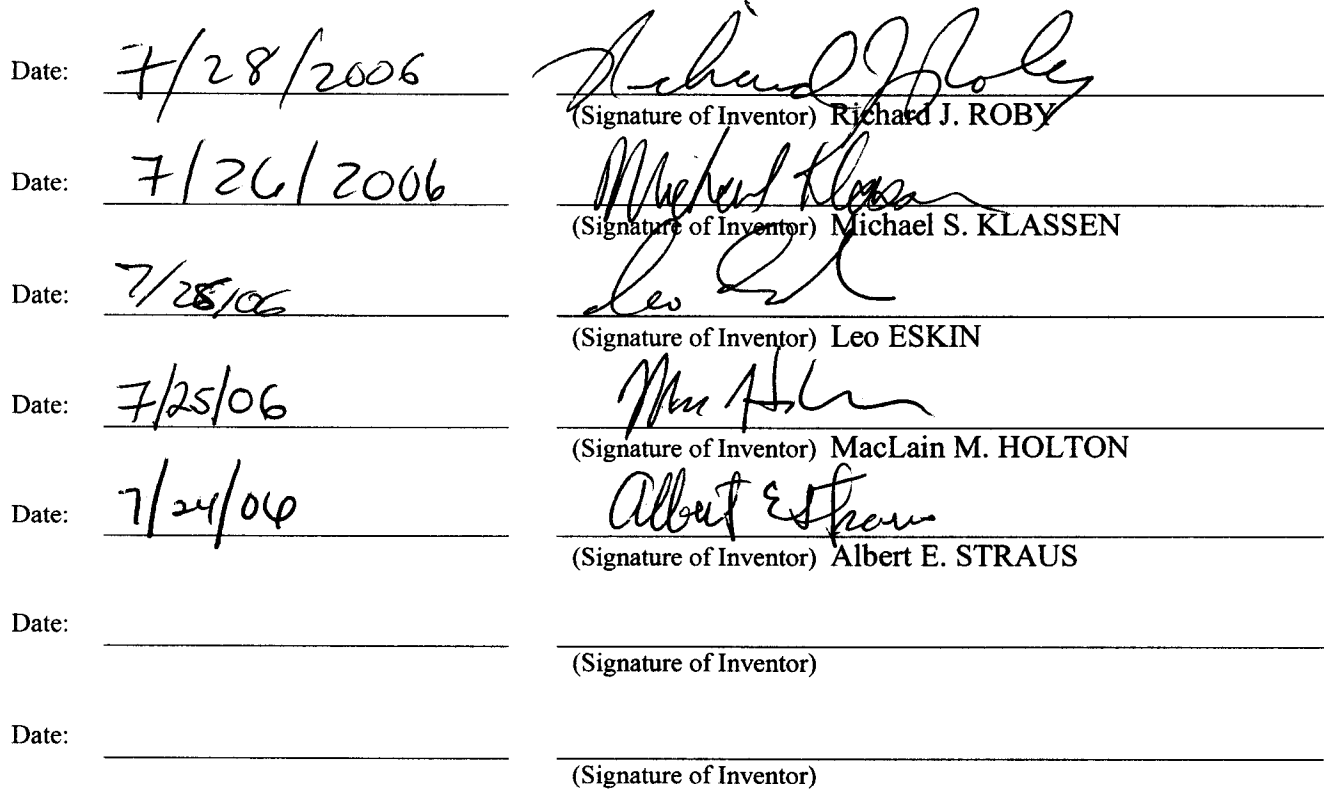 Date: 7/28/2006 Richard J Roby
(Signature of Inventor) Richard J. ROBY
Date: 7/26/2006 Michael Klassen
(Signature of Inventor) Michael S. KLASSEN
Date: 7/28/06 Leo
(Signature of Inventor) Leo ESKIN
Date: 7/25/06
(Signature of Inventor) MacLain M. HOLTON
Date: 7/24/06 Albert E Straus
(Signature of Inventor) Albert E. STRAUS
Date:
(Signature of Inventor)
Date:
(Signature of Inventor)